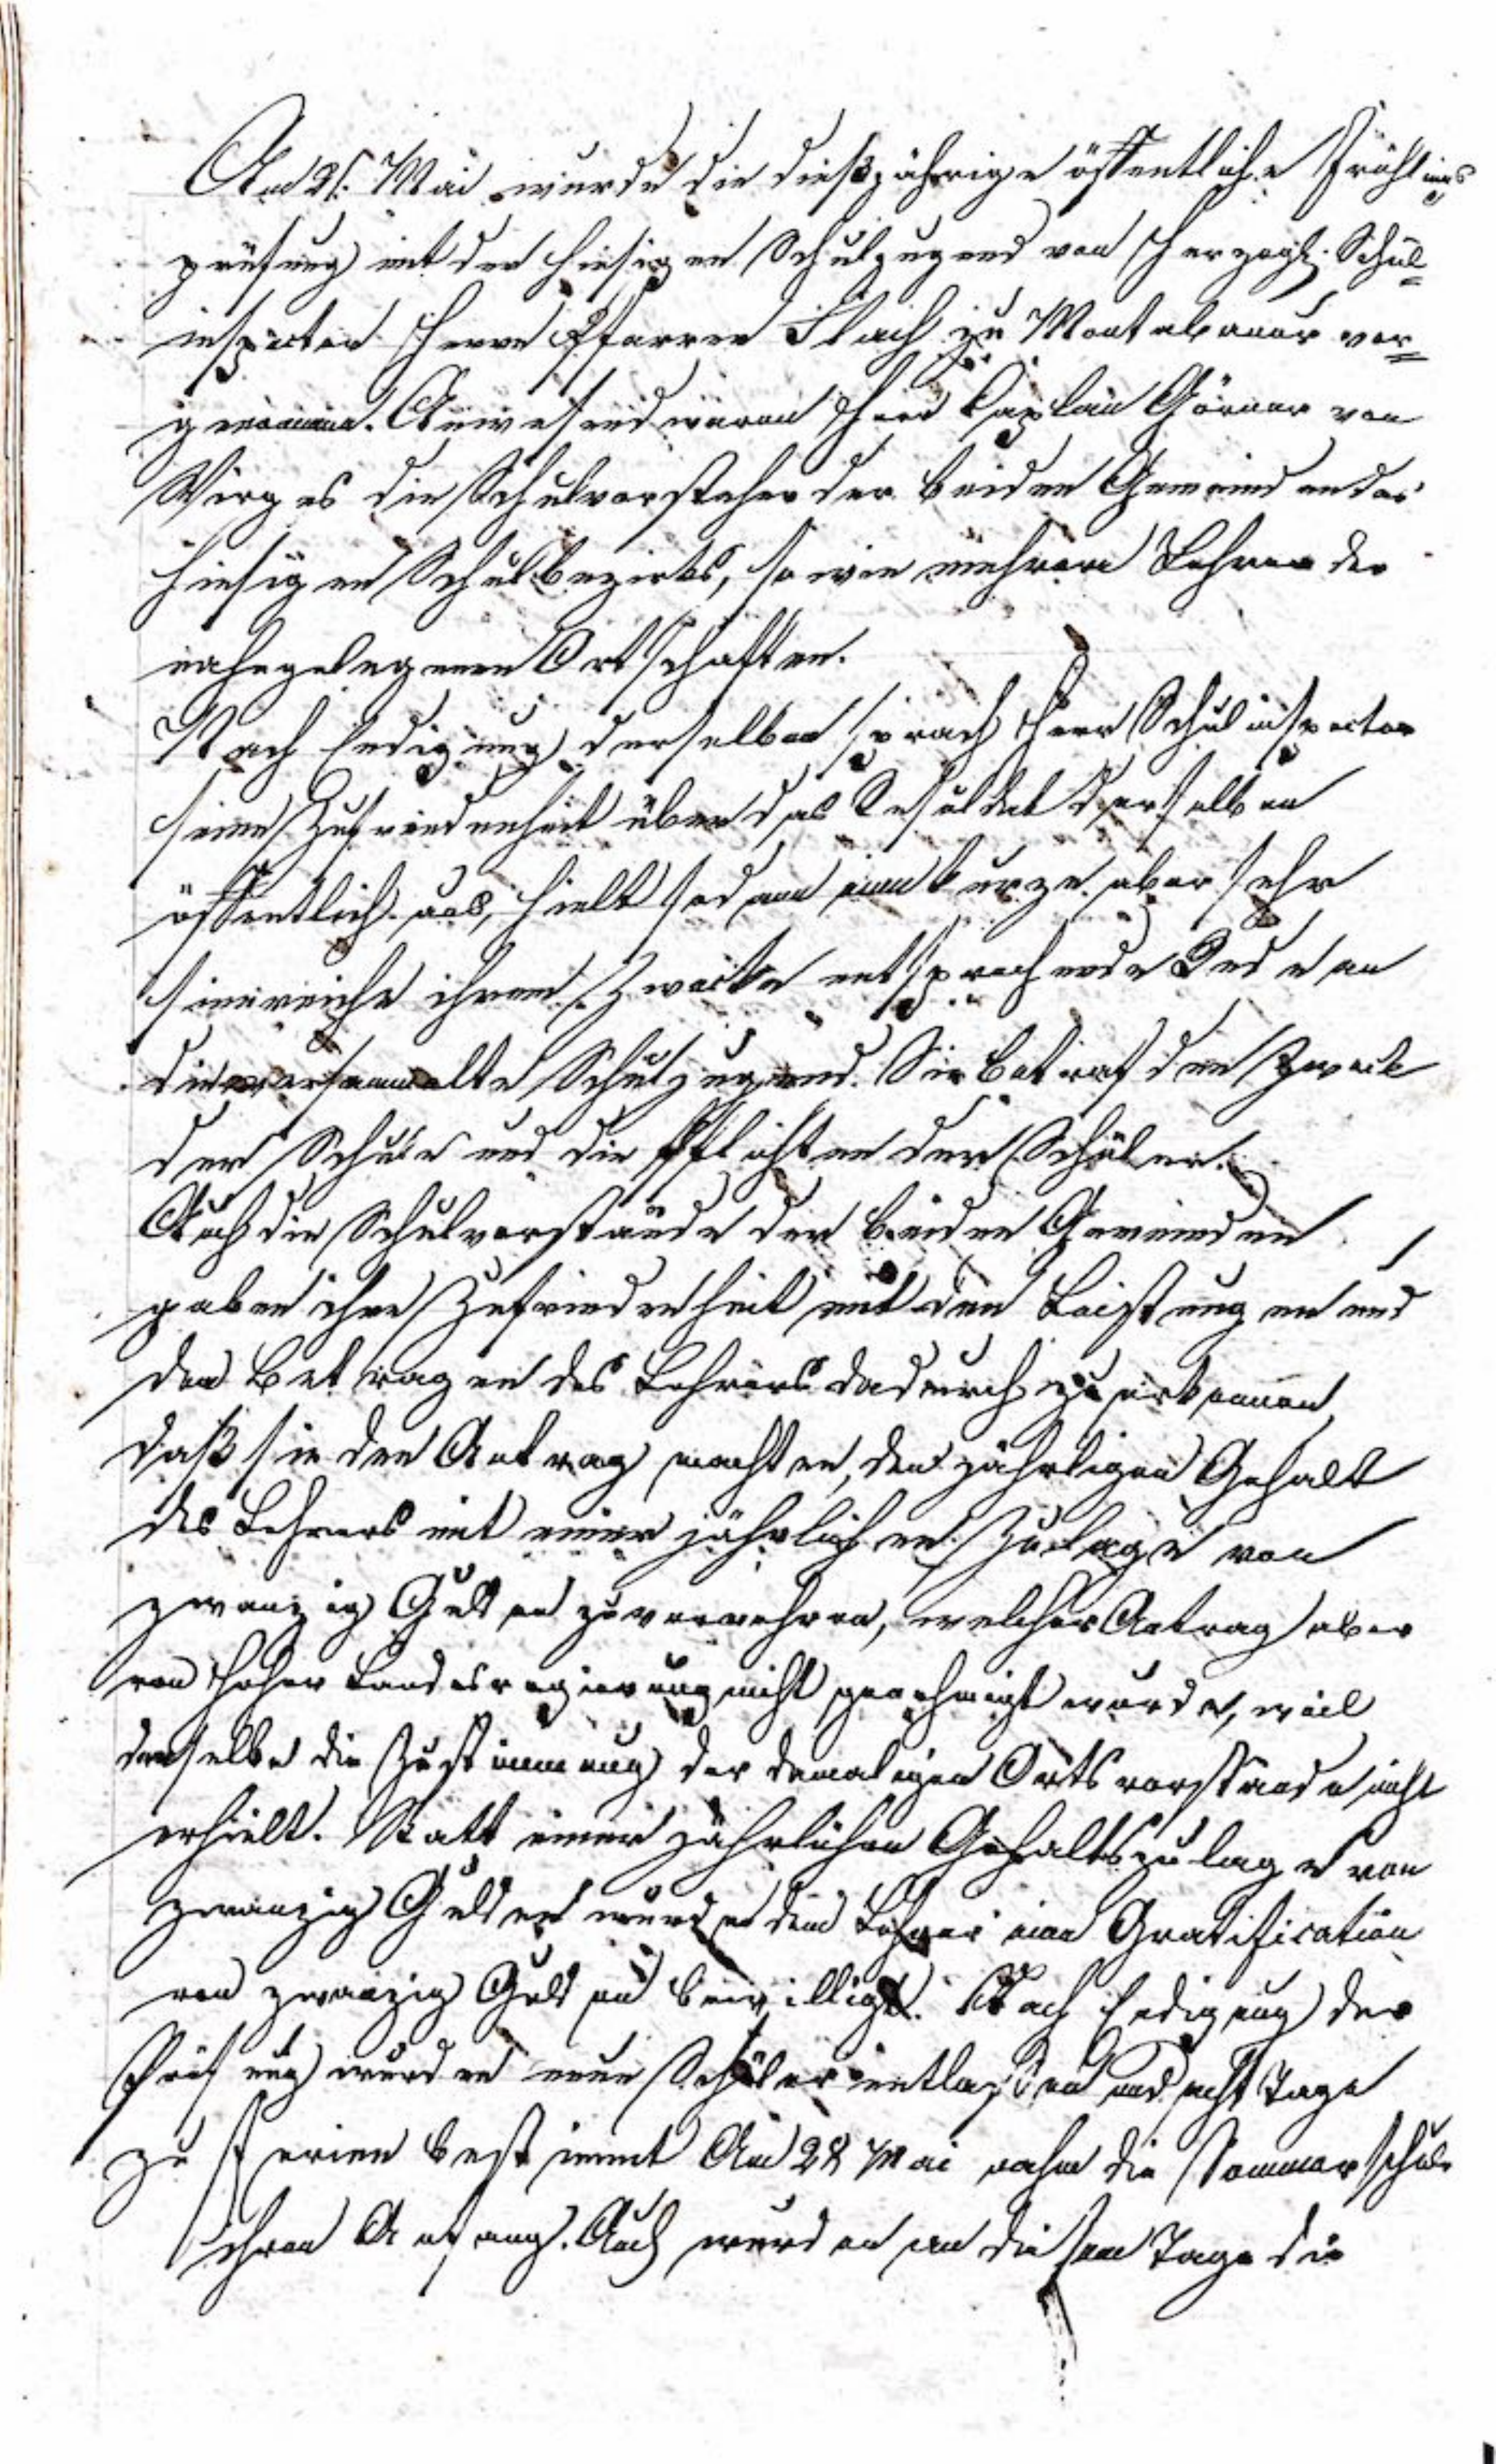 Am 21. Mai wurde die dießjährige öffentliche Frühlings
prüfung mit der hiesigen Schuljugend von Herzogl. Schul=
inspector Herrn Pfarrer Flach zu Montabaur vor=
genommen. Anwesend waren Herr Caplan Görner von
Wirges die Schulvorsteher der beiden Gemeinden des
hiesigen Schulbezirks, so wie mehrere Lehrer der
nahegelegenen Ortschaften.
Nach Endigung derselben sprach Herr Schulinspector
seine Zufriedenheit über das Resuldat derselben
öffentlich aus, hielt sodann eine kurze aber sehr
sinnreiche ihrem Zwecke entsprechende Rede an
die versammelte Schuljugend. Sie betraf den Zweck
der Schule und die Pflichten der Schüler.
Auch die Schulvorstände der beiden Gemeinden
gaben ihre Zufriedenheit mit den Leistungen und
dem Betragen des Lehrers dadurch zu erkennen,
daß sie den Antrag machten, den jährligen Gehalt
des Lehrers mit einer jährlichen Zulage von
zwanzig Gulden zu vermehren, welcher Antrag aber
von hoher Landesregierung nicht genehmigt wurde, weil
derselbe die Zustimmung der damaligen Ortsvorstände nicht
erhielt. Statt einer jährlichen Gehaltszulage von
zwanzig Gulden wurde dem Lehrer eine Gratification
von zwanzig Gulden bewilligt. Nach Endigung der
Prüfung wurden neun Schüler entlassen und acht Tage
zu Ferien bestimmt Am 28 Mai nahm die Sommerschule
ihren Anfang. Auch wurden an diesem Tage die